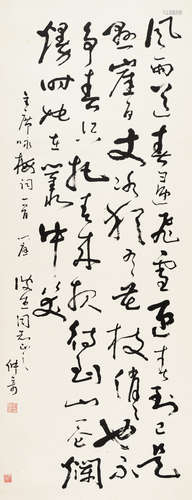 風雨送春歸飛雪迎春到已是
懸崖百丈冰猶有花枝俏〻也不
爭春只把春來報待到山花爛
熳時她在叢中笑
主席咏梅詞一首
同志正之